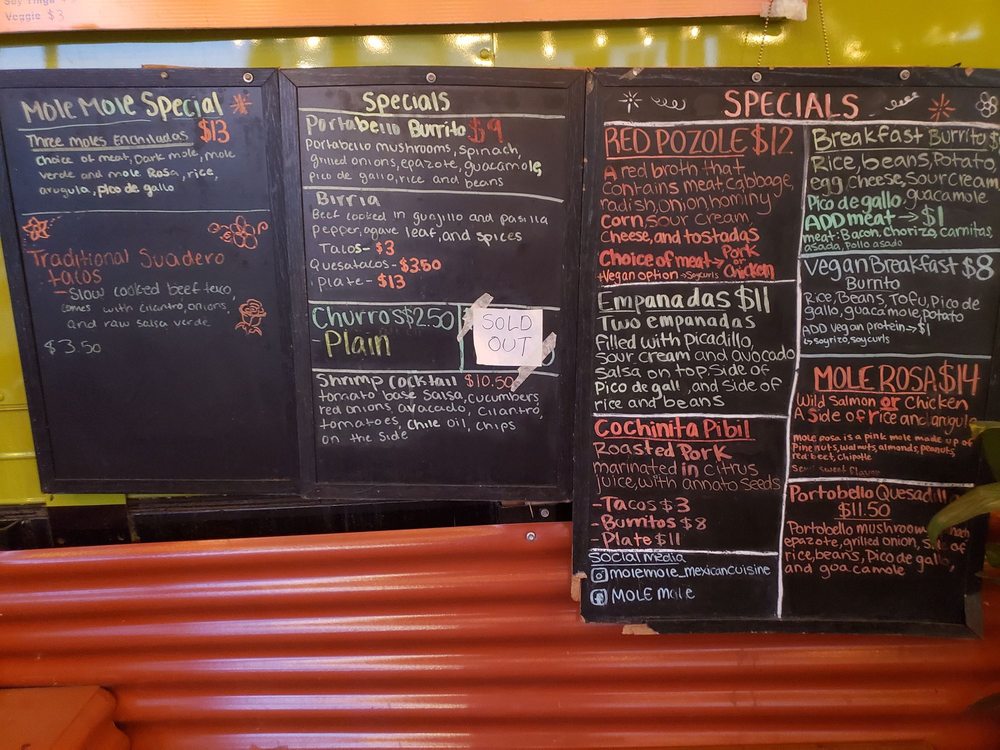 Veggie $3
Mole Mole Special
Three moles Enchiladas $13
choice of meat, Dark mole, mole
verde and mole Rosa, rice,
arugula, pico de gallo
Traditional Suadero
tacos
- Slow cooked beef taco,
comes with cilantro, onions,
and raw salsa verde
$3.50
Specials
Portabello Burrito $9
Portabello mushrooms, spinach,
grilled onions, epazote, guacamole,
pico de gallo, rice and beans
Birria
Beef cooked in guajillo and pasilla
pepper, agave leaf, and spices
Tacos - $3
Quesatacos - $3.50
Plate - $13
Churros $2.50
- Plain
SOLD
OUT
Shrimp cocktail $10.50
tomato base Salsa, cucumbers
red onions, avacado, cilantro,
tomatoes, chile oil, chips
on the side
SPECIALS
RED POZOLE $12
A red broth that
contains meat, cabbage,
radish, onion, hominy
corn, sour cream,
cheese, and tostadas
Choice of meat → Pork
or
chicken
*Vegan option → Soycurls
Empanadas $11
Two empanadas
filled with Picadillo,
sour cream and avocado
salsa on top, side of
Pico de gall, and side of
rice and beans
Cochinita Pibil
Roasted Pork
marinated in citrus
juice, with annato seeds
- Tacos $3
- Burritos $8
- Plate $11
Social Media
molemole_mexicancuisine
MOLE mole
Breakfast Burrito $
Rice, beans, Potato,
egg, cheese, sour cream
Pico de gallo, guacamole
ADD meat → $1
meat: Bacon, Chorizo, carnitas,
asada, Pollo asado
Vegan Breakfast $8
Burrito
Rice, Beans, Tofu, Pico de
gallo, guacamole, potato
ADD vegan protein → $1
↳ soyrizo, soycurls
MOLE ROSA $14
Wild Salmon or Chicken
A Side of rice and arugula
mole rosa is a pink mole made up of
Pine nuts, walnuts, almonds, peanuts,
red beet, chipotle
Semi sweet flavor
Portobello Quesadilla
$11.50
Portobello mushroom
epazote, grilled onion, of
rice, beans, Pico de gallo,
and guacamole